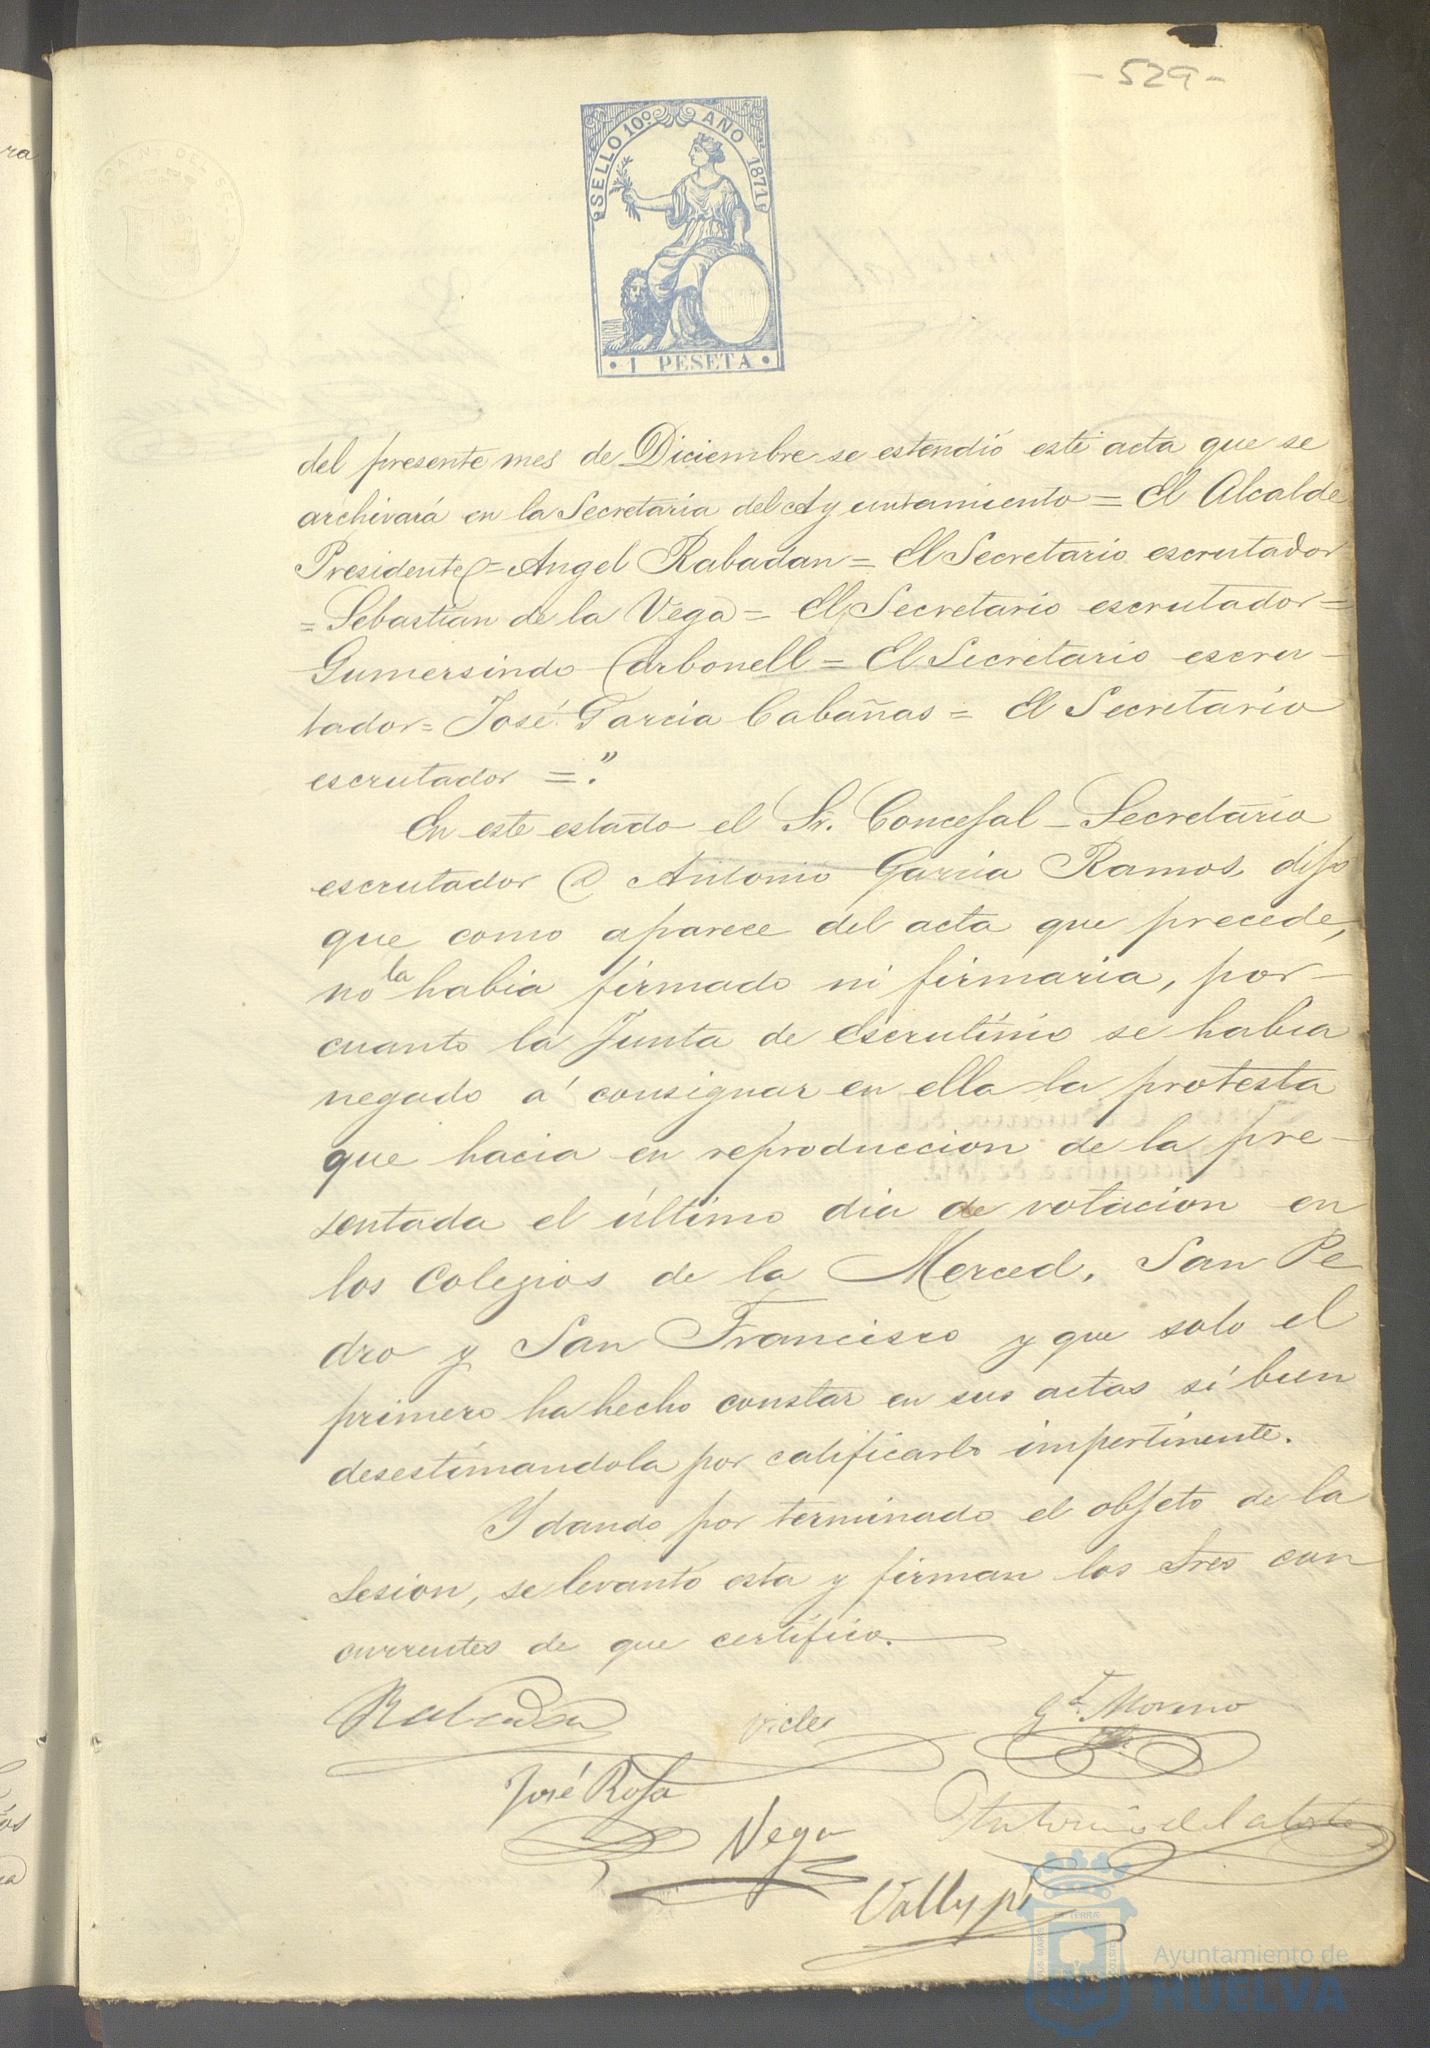 - 529 -
SELLO 10º AÑO 1871
1 PESETA
del presente mes de Diciembre se estendió este acta que se
archivará en la Secretaria del Ayuntamiento = El Alcalde
Presidente = Angel Rabadan = El Secretario escrutador
= Sebastian de la Vega = El Secretario escrutador =
Gumersindo Carbonell = El Secretario escru-
tador = José Garcia Cabañas = El Secretario
escrutador = ."
En este estado el Sr. Concejal - Secretario
escrutador D Antonio Garcia Ramos dijo
que como aparece del acta que precede,
no la habia firmado ni firmaria, por-
cuanto la Junta de Escrutinio se habia
negado á consignar en ella la protesta
que hacia en reproduccion de la pre-
sentada el último dia de votacion en
los Colegios de la Merced, San Pe
dro y San Francisco y que solo el
primero ha hecho constar en sus actas si bien
desestimandola por calificarlo impertinente.
Y dando por terminado el objeto de la
sesion, se levantó esta y firman los Sres con
currentes de que certifico.
Rabadan
G. Moreno
José Rosa
Vega
Ayuntamiento de
HUELVA